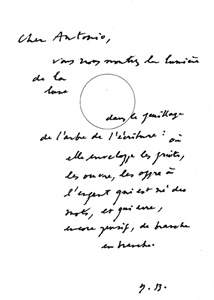 Cher Antonio,
vous nous montrez la lumière
de la
lune
dans le feuillage
de l'arbre de l'écriture : où
elle enveloppe les fruits,
les ouvre, les offre à
l'enfant qui est né des
mots, et qui erre,
encore pensif, de branche
en branche.
Y. B.